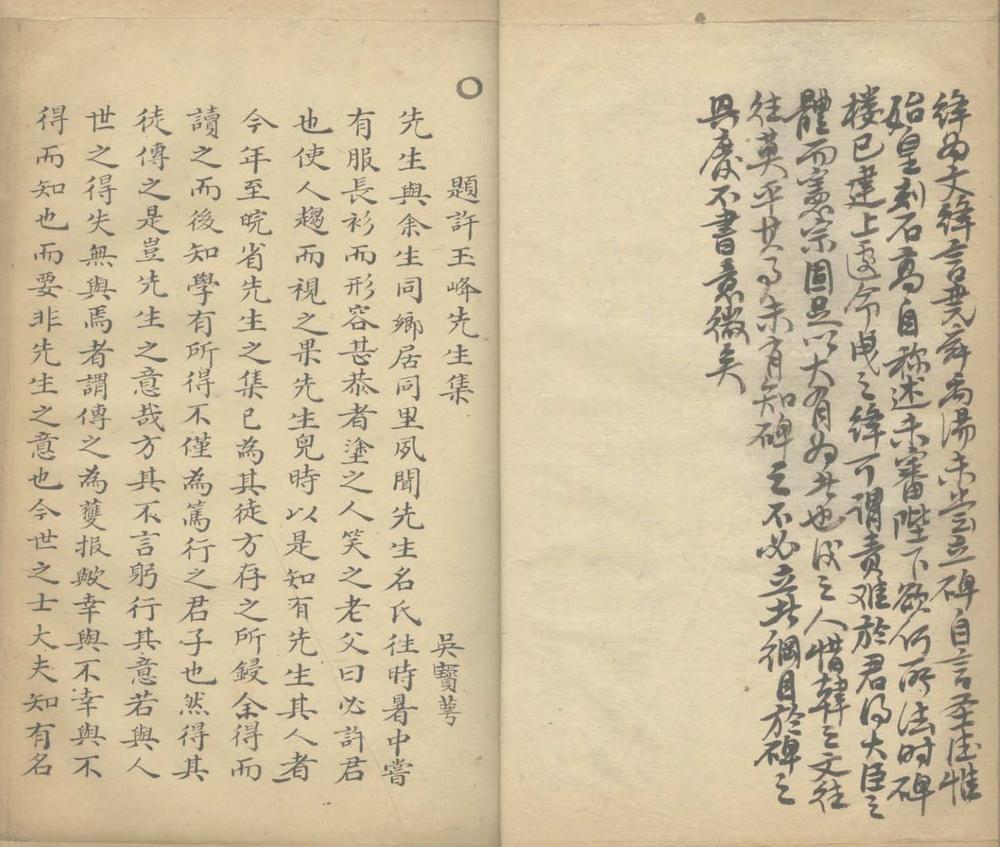 絳為文絳言堯舜禹湯未嘗立碑自言聖德惟
始皇刻石高自稱述未審陛下欲何所法時碑
楼已建上遽命曳之絳可謂責难於君得大臣之
體而憲宗固足以大有為者也後之人惜韓之文往
往莫平其事未有知碑之不必立者綱目於碑之
興廢不書意微矣
題許玉峰先生集
吳寶萼
先生與余生同鄉居同里夙聞先生名氏往時暑中嘗
有服長衫而形容甚恭者塗之人笑之老父曰必許君
也使人趨而視之果先生兒時以是知有先生其人者
今年至皖省先生之集已為其徒方存之所鋟余得而
讀之而後知學有所得不僅為篤行之君子也然得其
徒傳之是豈先生之意哉方其不言躬行其意若與人
世之得失無與焉者謂傳之為雙報歟幸與不幸與不
得而知也而要非先生之意也今世之士大夫知有名